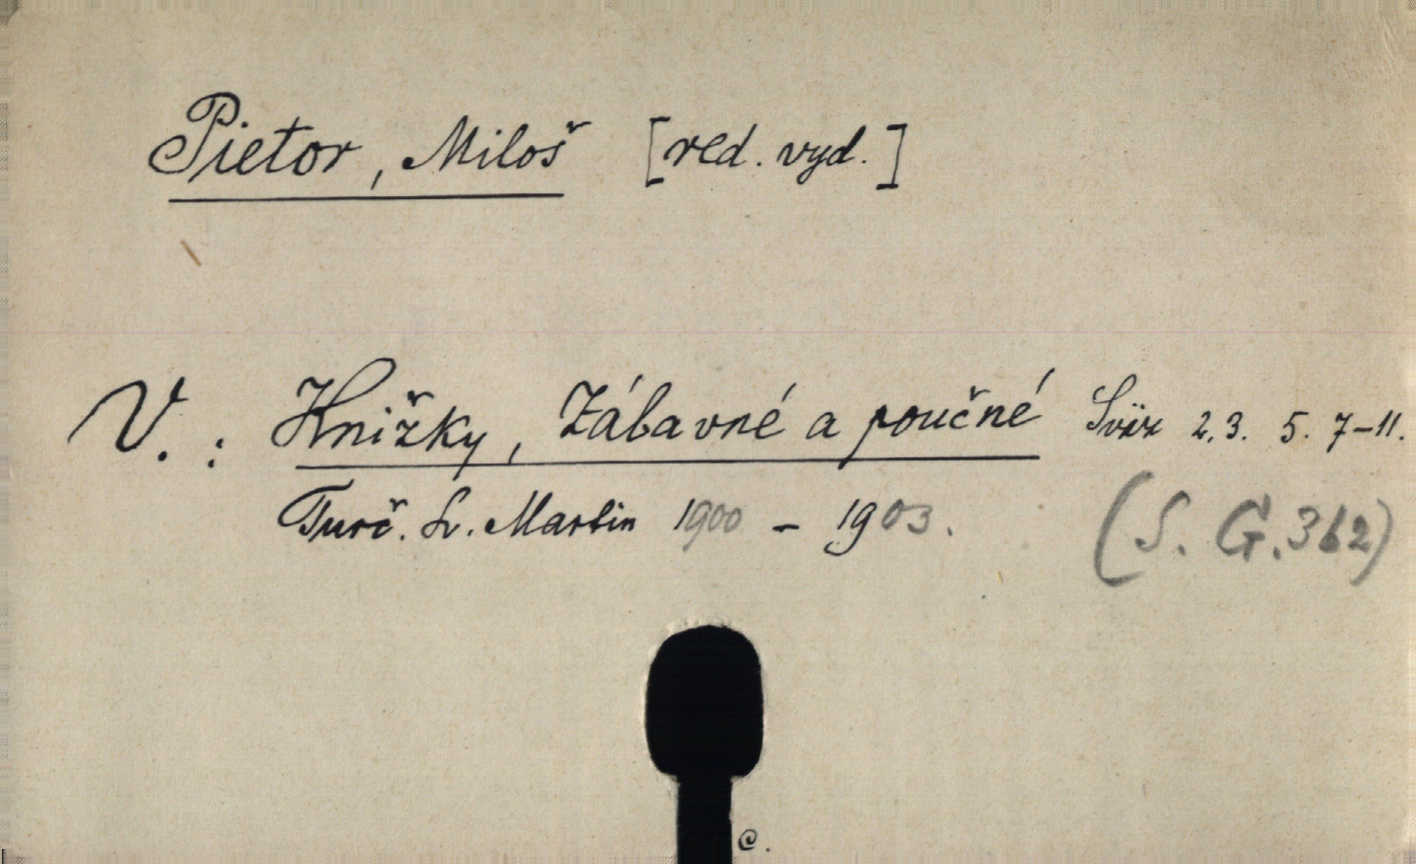 Pietor, Miloš [red. vyd.]
V. : Knižky, Zábavné a poučné Sväz 2. 3. 5. 7-11.
Turč. Sv. Martin 1900 - 1903.
(S. G. 362)
C.